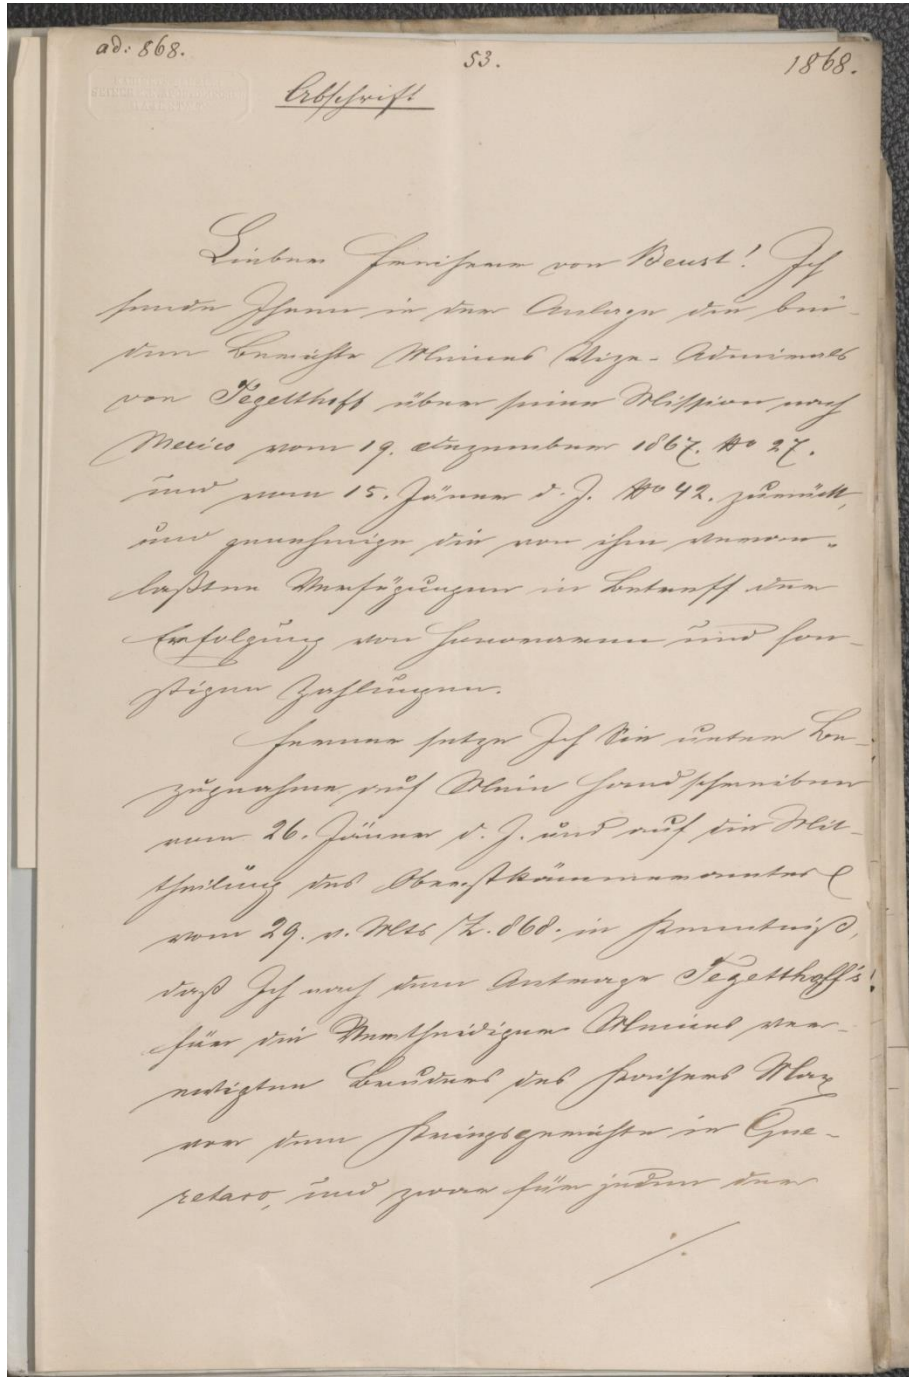 ad: 868.
53.
1868.
Abschrift
Lieber Freiherr von Beust! Ich
sende Ihnen in der Anlage die bei-
den Berichte Meines Vize-Admirals
von Tegetthoff über seine Mission nach
Mexico vom 19. Dezember 1867. No 27.
und vom 15. Jänner d. J. No 42. zurück,
und genehmige die von ihm veran-
laßten Verfügungen in Betreff der
Erfolgung von Honoraren und son-
stigen Zahlungen.
Ferner setze Ich Sie unter Be-
zugnahme auf Mein Handschreiben
vom 26. Jänner d. J. und auf die Mit-
theilung des Oberstkämmereramtes
vom 29. v. Mts /Z. 868. in Kenntniß,
daß Ich nach dem Antrage Tegetthoff's
für die Vertheidiger Meines ver-
ewigten Bruders des Kaisers Max
vor dem Kriegsgerichte in Que-
retaro, und zwar für jeden der
./.